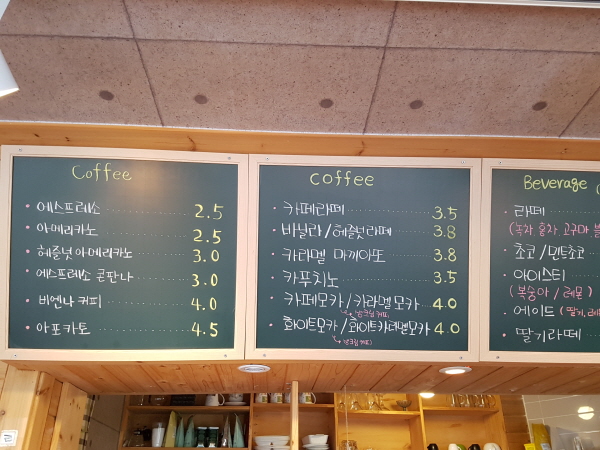 Coffee
에스프레소 2.5
아메리카노 2.5
헤즐넛 아메리카노 3.0
에스프레소 콘판나 3.0
비엔나 커피 4.0
아포카토 4.5
coffee
카페라떼 3.5
바닐라/헤즐넛라떼 3.8
카라멜 마끼아또 3.8
카푸치노 3.5
카페모카/카라멜모카 4.0
화이트모카/화이트카라멜모카 4.0
Beverage (
라떼
(녹차, 홍차, 고구마, 블
초코/민트초코
아이스티
(복숭아/레몬)
에이드 (딸기, 레몬
딸기라떼